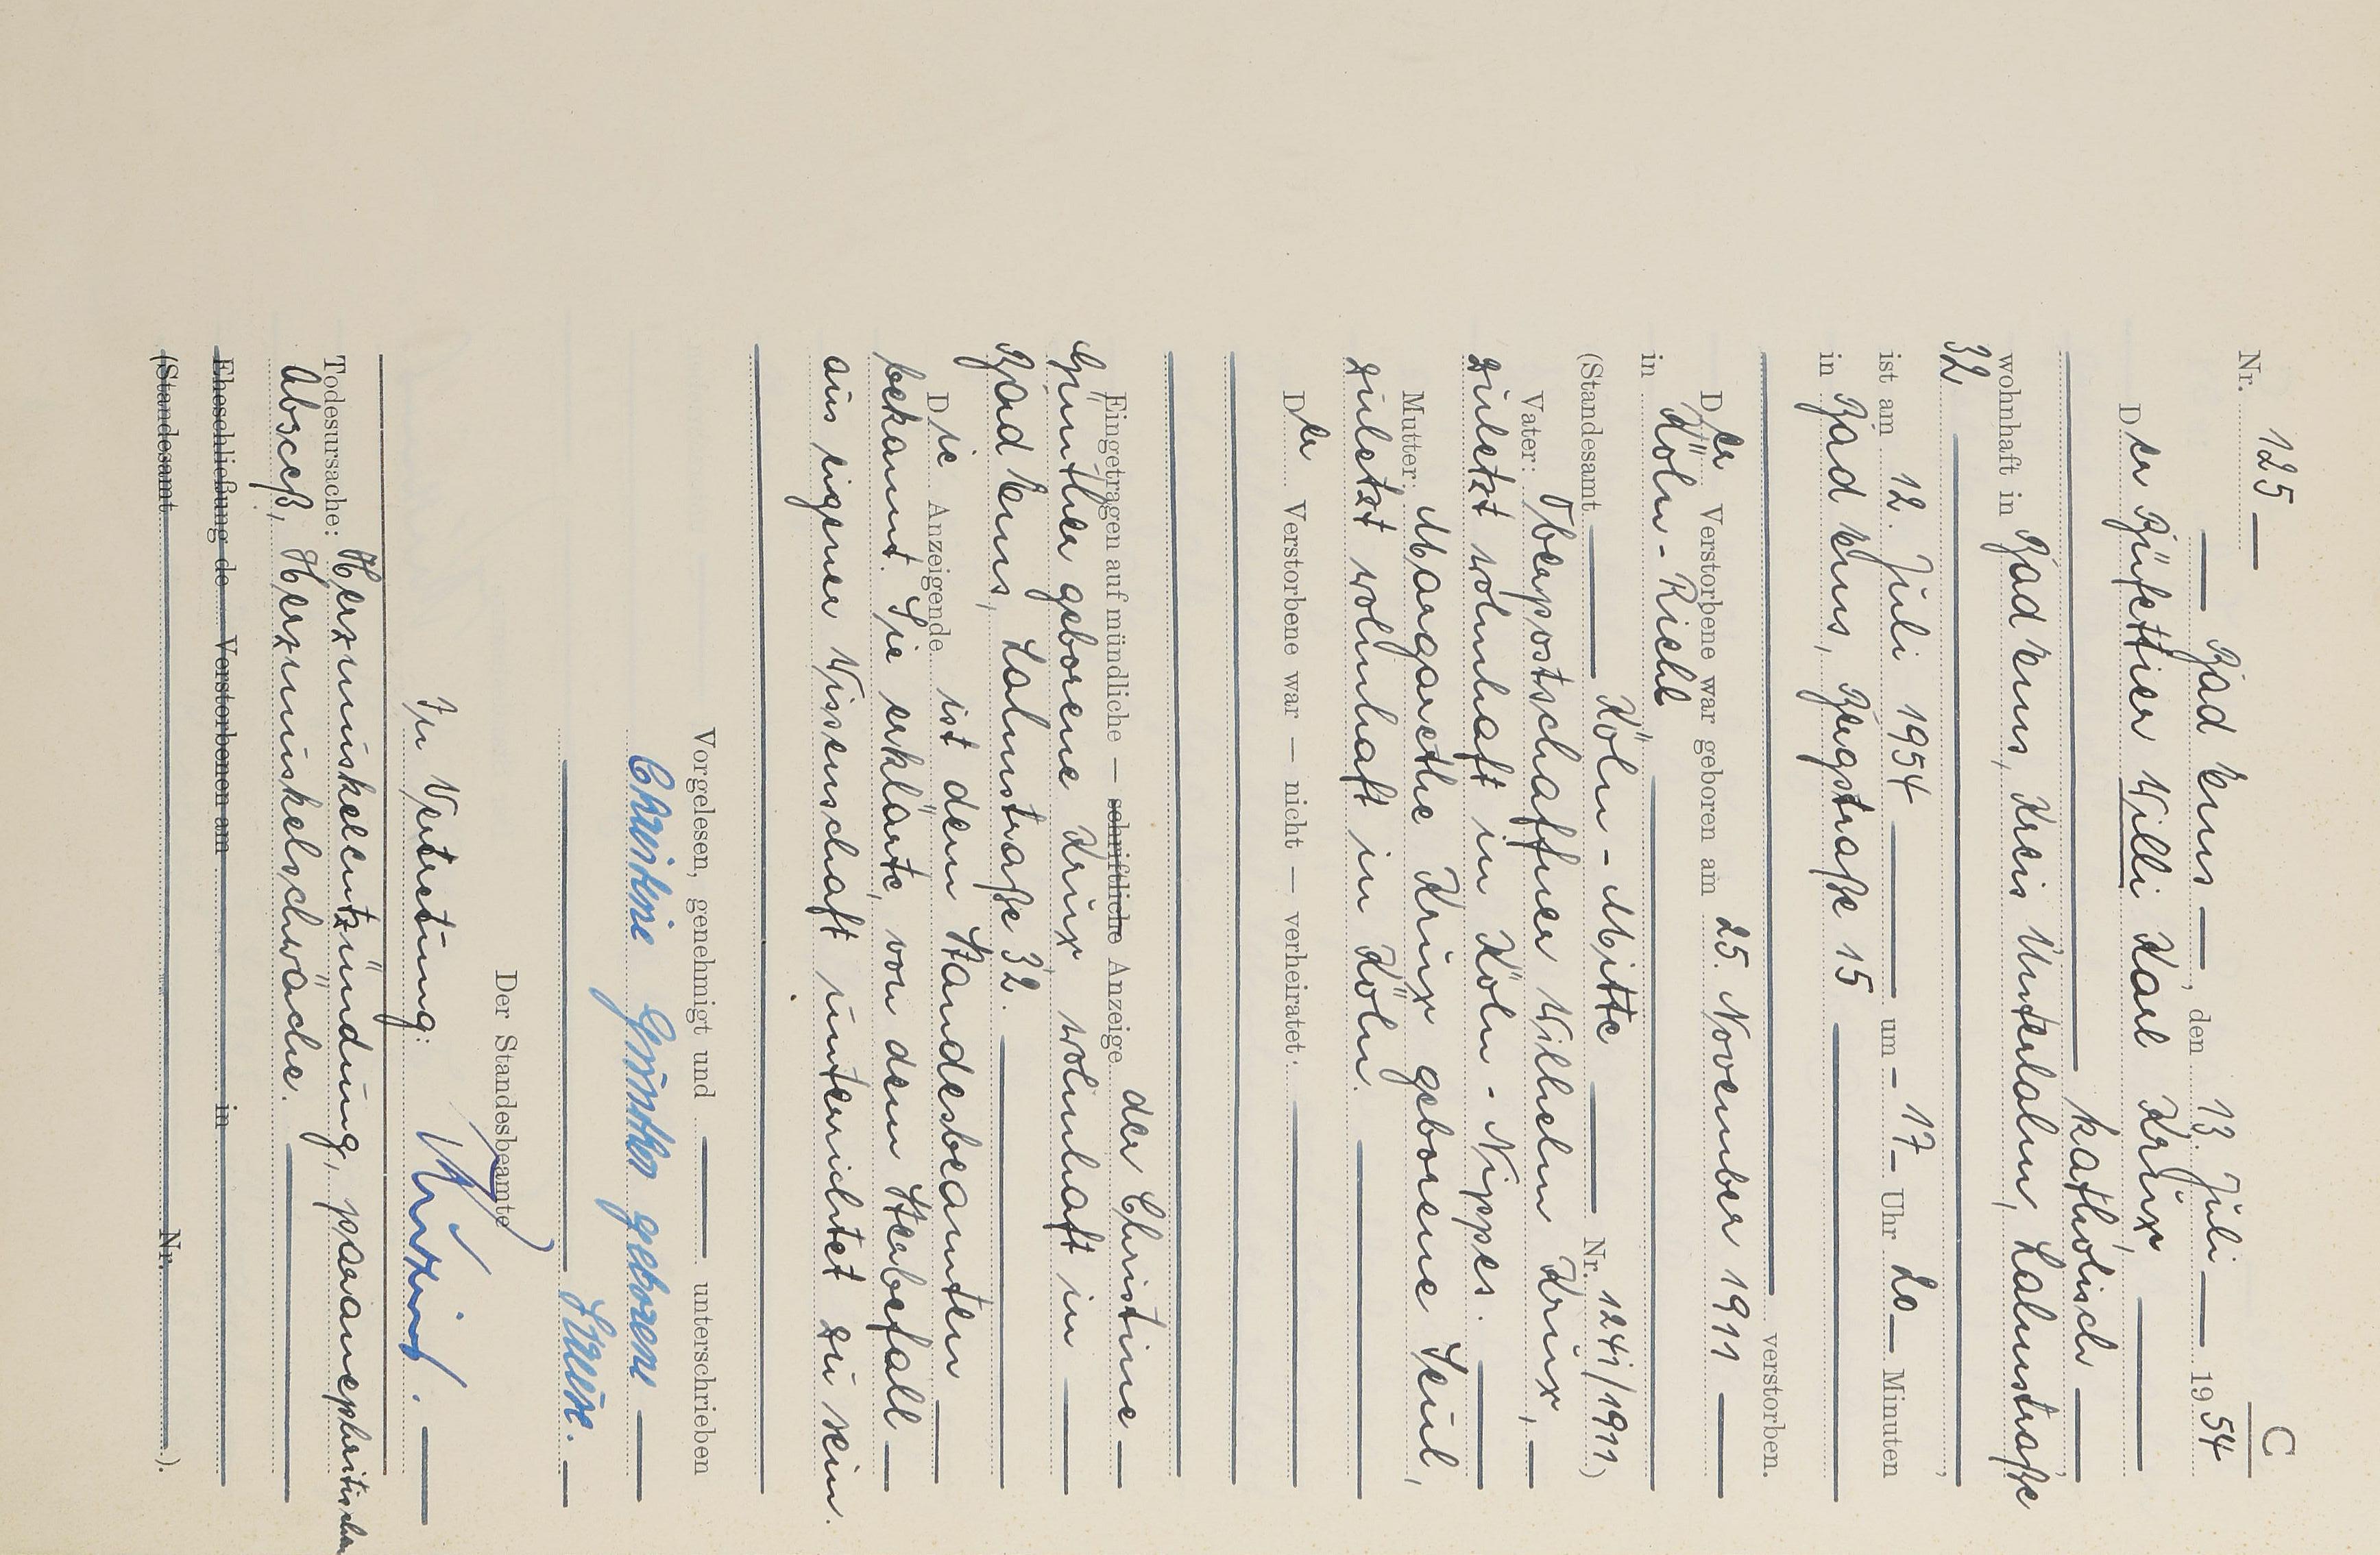 C
Nr. 125
Bad Ems, den 13. Juli 1954
Der Büfettier Willi Karl Krux,
katholisch,
wohnhaft in Bad Ems, Kreis Unterlahn, Lahnstraße
32,
ist am 12. Juli 1954 um 17 Uhr 20 Minuten
in Bad Ems, Bergstraße 15
verstorben.
Der Verstorbene war geboren am 25. November 1911
in Köln-Riehl
(Standesamt Köln-Mitte Nr. 1241/1911)
Vater: Oberpostschaffner Wilhelm Krux,
zuletzt wohnhaft in Köln-Nippes.
Mutter: Margarethe Krux geborene Seul,
zuletzt wohnhaft in Köln.
Der Verstorbene war — nicht — verheiratet.
Eingetragen auf mündliche — schriftliche Anzeige der Christine
Günther geborene Krux wohnhaft in
Bad Ems, Lahnstraße 32.
Die Anzeigende ist dem Standesbeamten
bekannt. Sie erklärte, von dem Sterbefall
aus eigener Wissenschaft unterrichtet zu sein.
Vorgelesen, genehmigt und unterschrieben
Christine Günther geborene
Krux.
Der Standesbeamte
In Vertretung:
Todesursache: Herzmuskelentzündung, paranephritischer
Absceß, Herzmuskelschwäche.
Eheschließung de Verstorbenen am in
(Standesamt Nr. ).